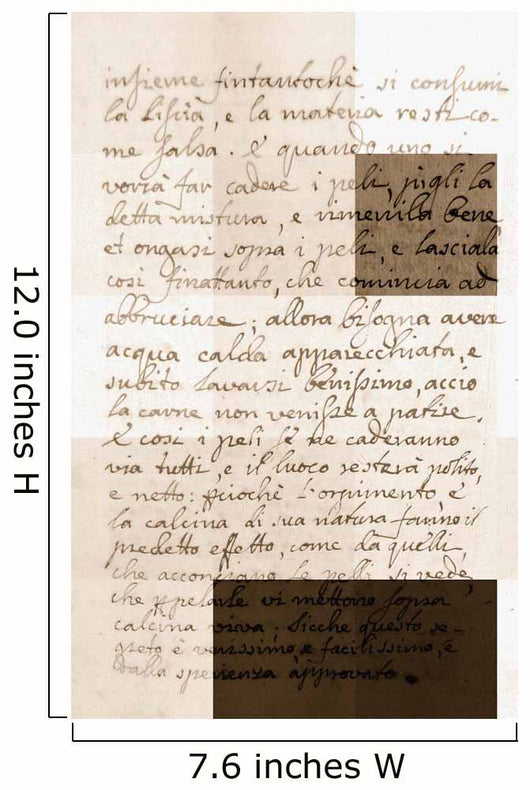 insieme fintantochè si consumi
la liscià, e la materia resti co-
me salsa. E quando uno si
vorrà far cadere i peli, pigli la
detta mistura, e rimenila bene
et ongasi sopra i peli, e lasciala
cosi finattanto, che comincia ad
abbruciare; allora bisogna avere
acqua calda apparecchiata, e
subito lavarsi benissimo, acciò
la carne non venisse a patire.
E cosi i peli se ne caderanno
via tutti, e il luoco resterà polito,
e netto: l'orpimento, e
la calcina di sua natura fanno il
predetto effetto, come da quelli,
che acconciano le pelli si vede,
che vi mettono sopra
calcina viva; Sicche questo se-
greto è verissimo, e facilissimo, e
dalla sperienza approvato.
12.0 inches H
7.6 inches W